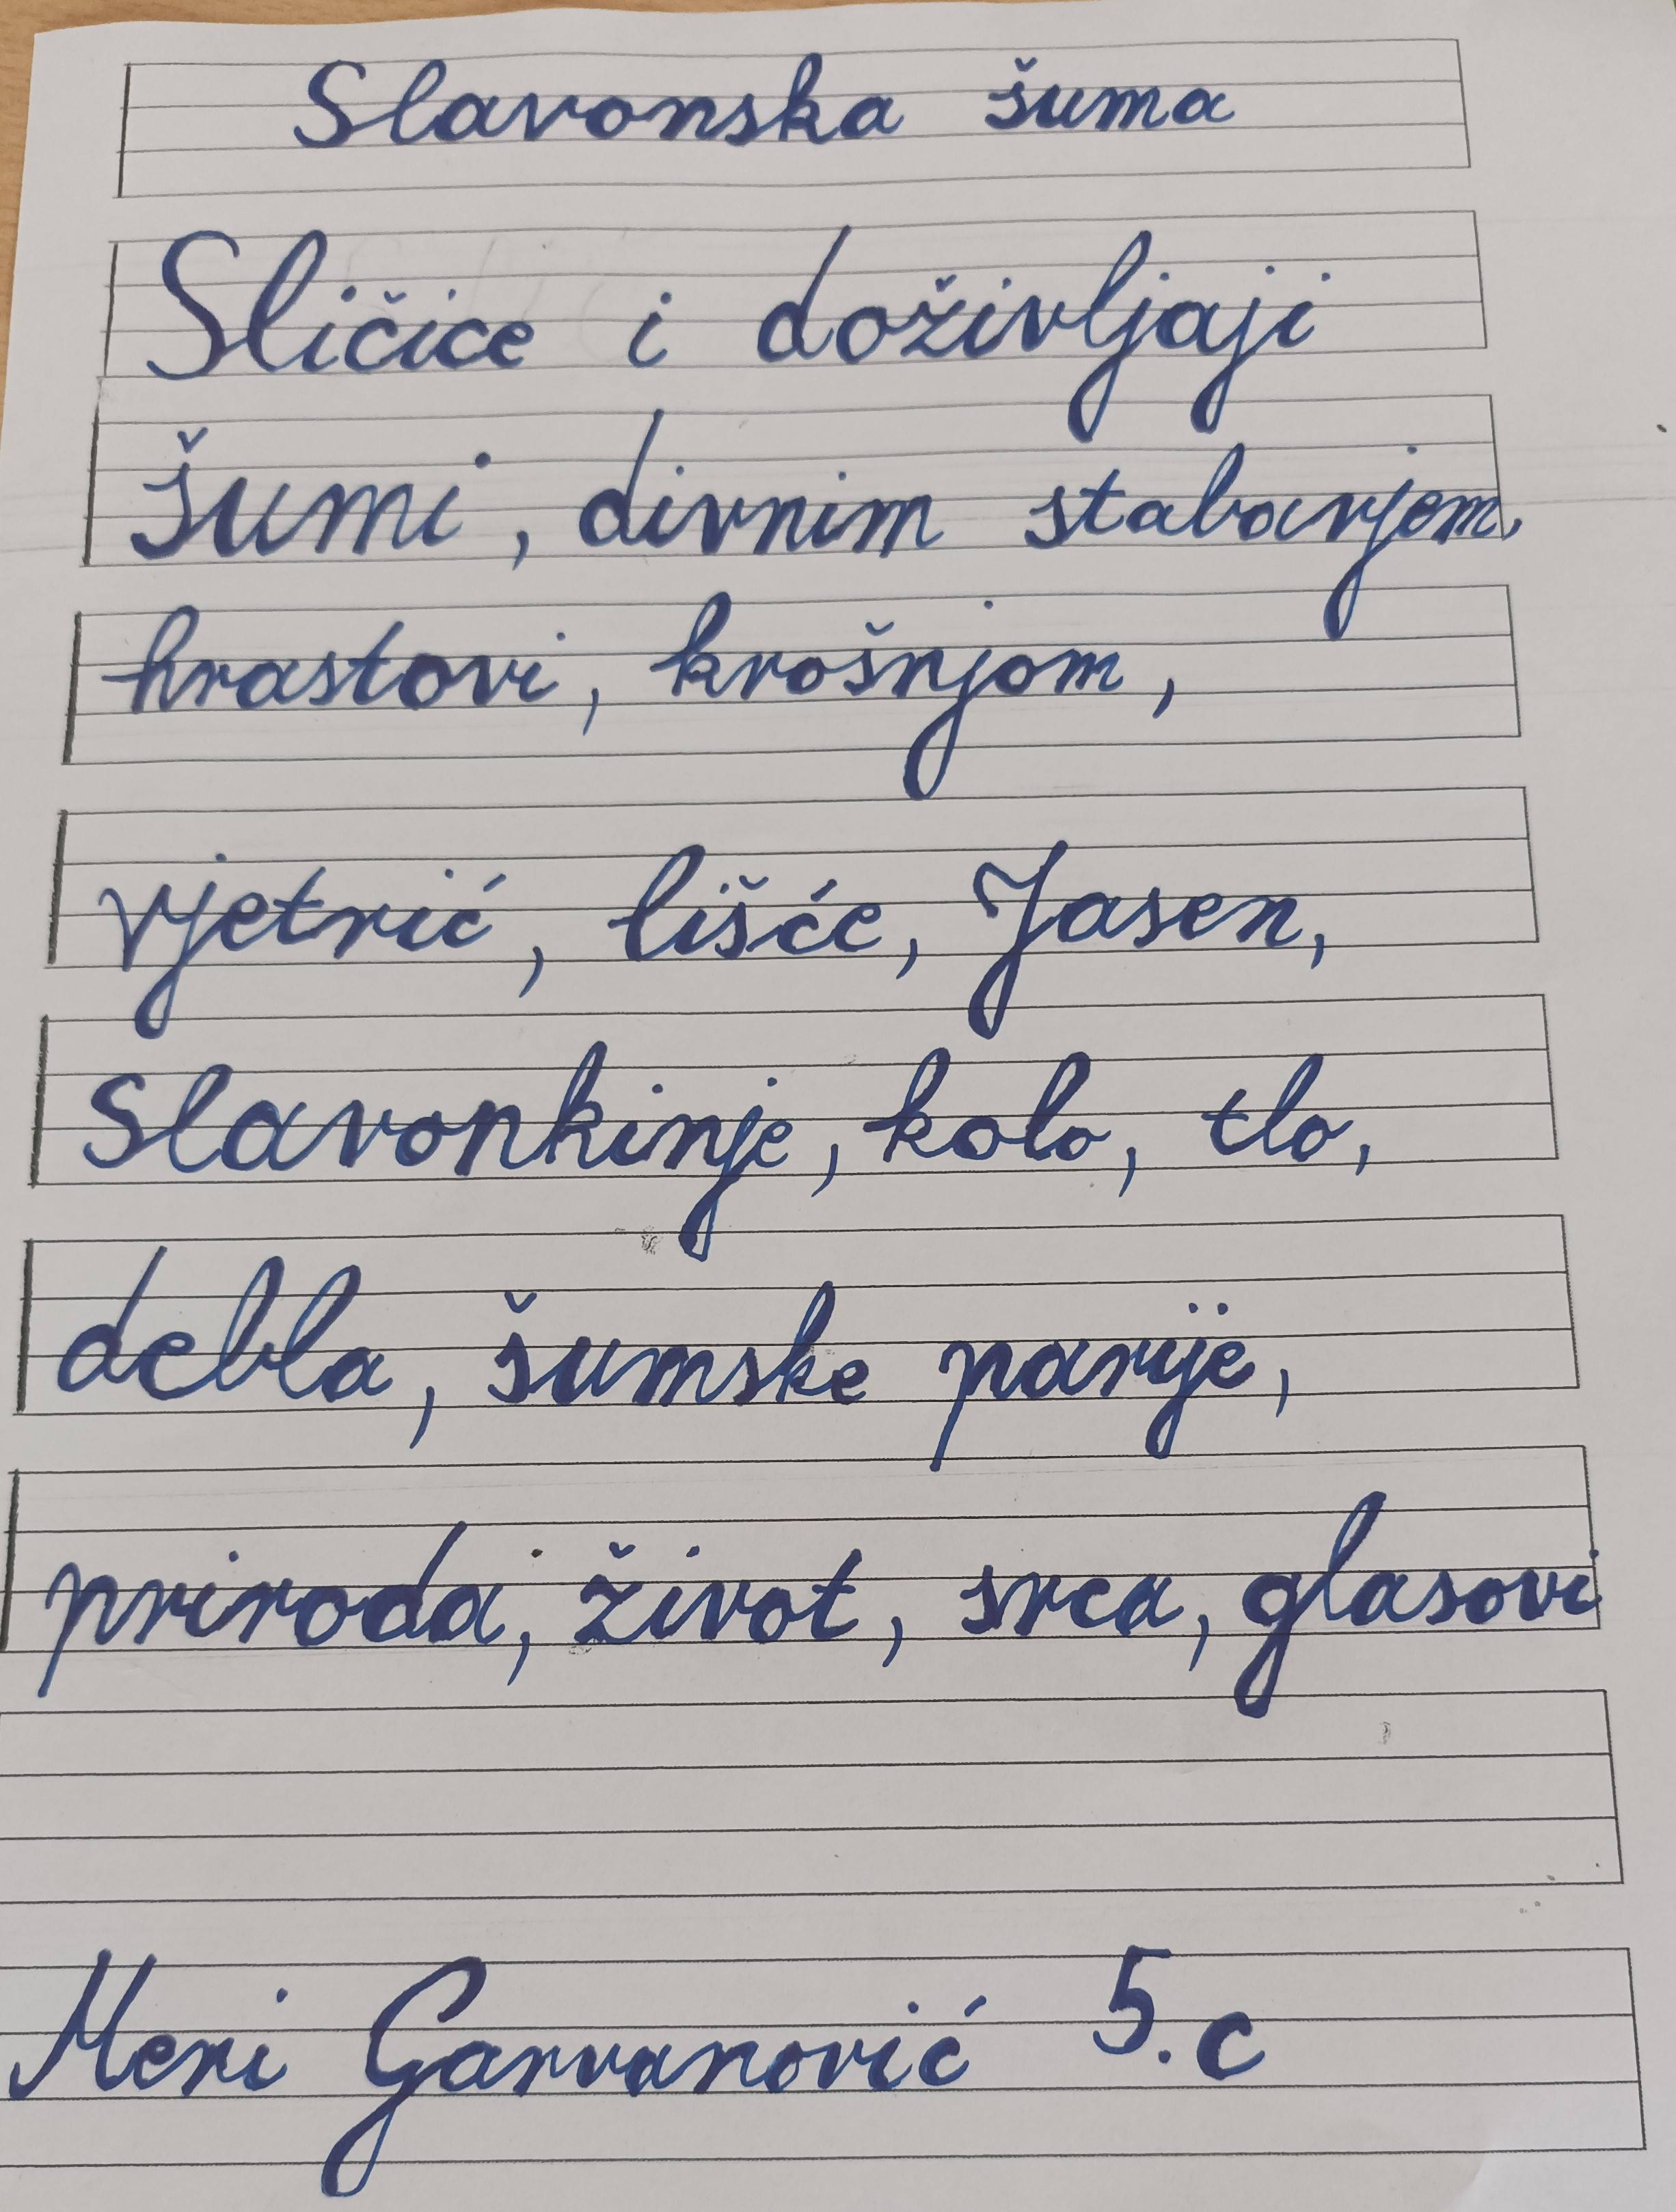 Slavonska šuma
Sličice i doživljaji
šumi, divnim stabarjem,
hrastovi, krošnjom,
vjetrić, lišće, Jasen,
Slavonkinje, kolo, tlo,
debla, šumske parije,
priroda, život, srca, glasovi
Meri Garvanović 5.c